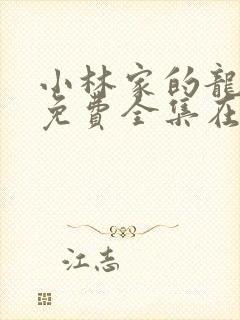 小林家的龍
免費全集在
江志